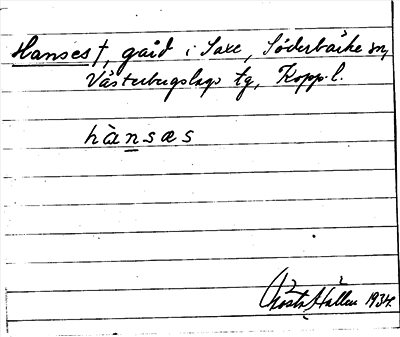 Hanses †, gård i Saxe, Söderbärke sn,
Västerbergslags tg, Kopp. l.
hànsæs
Gösta Hallen 1934.